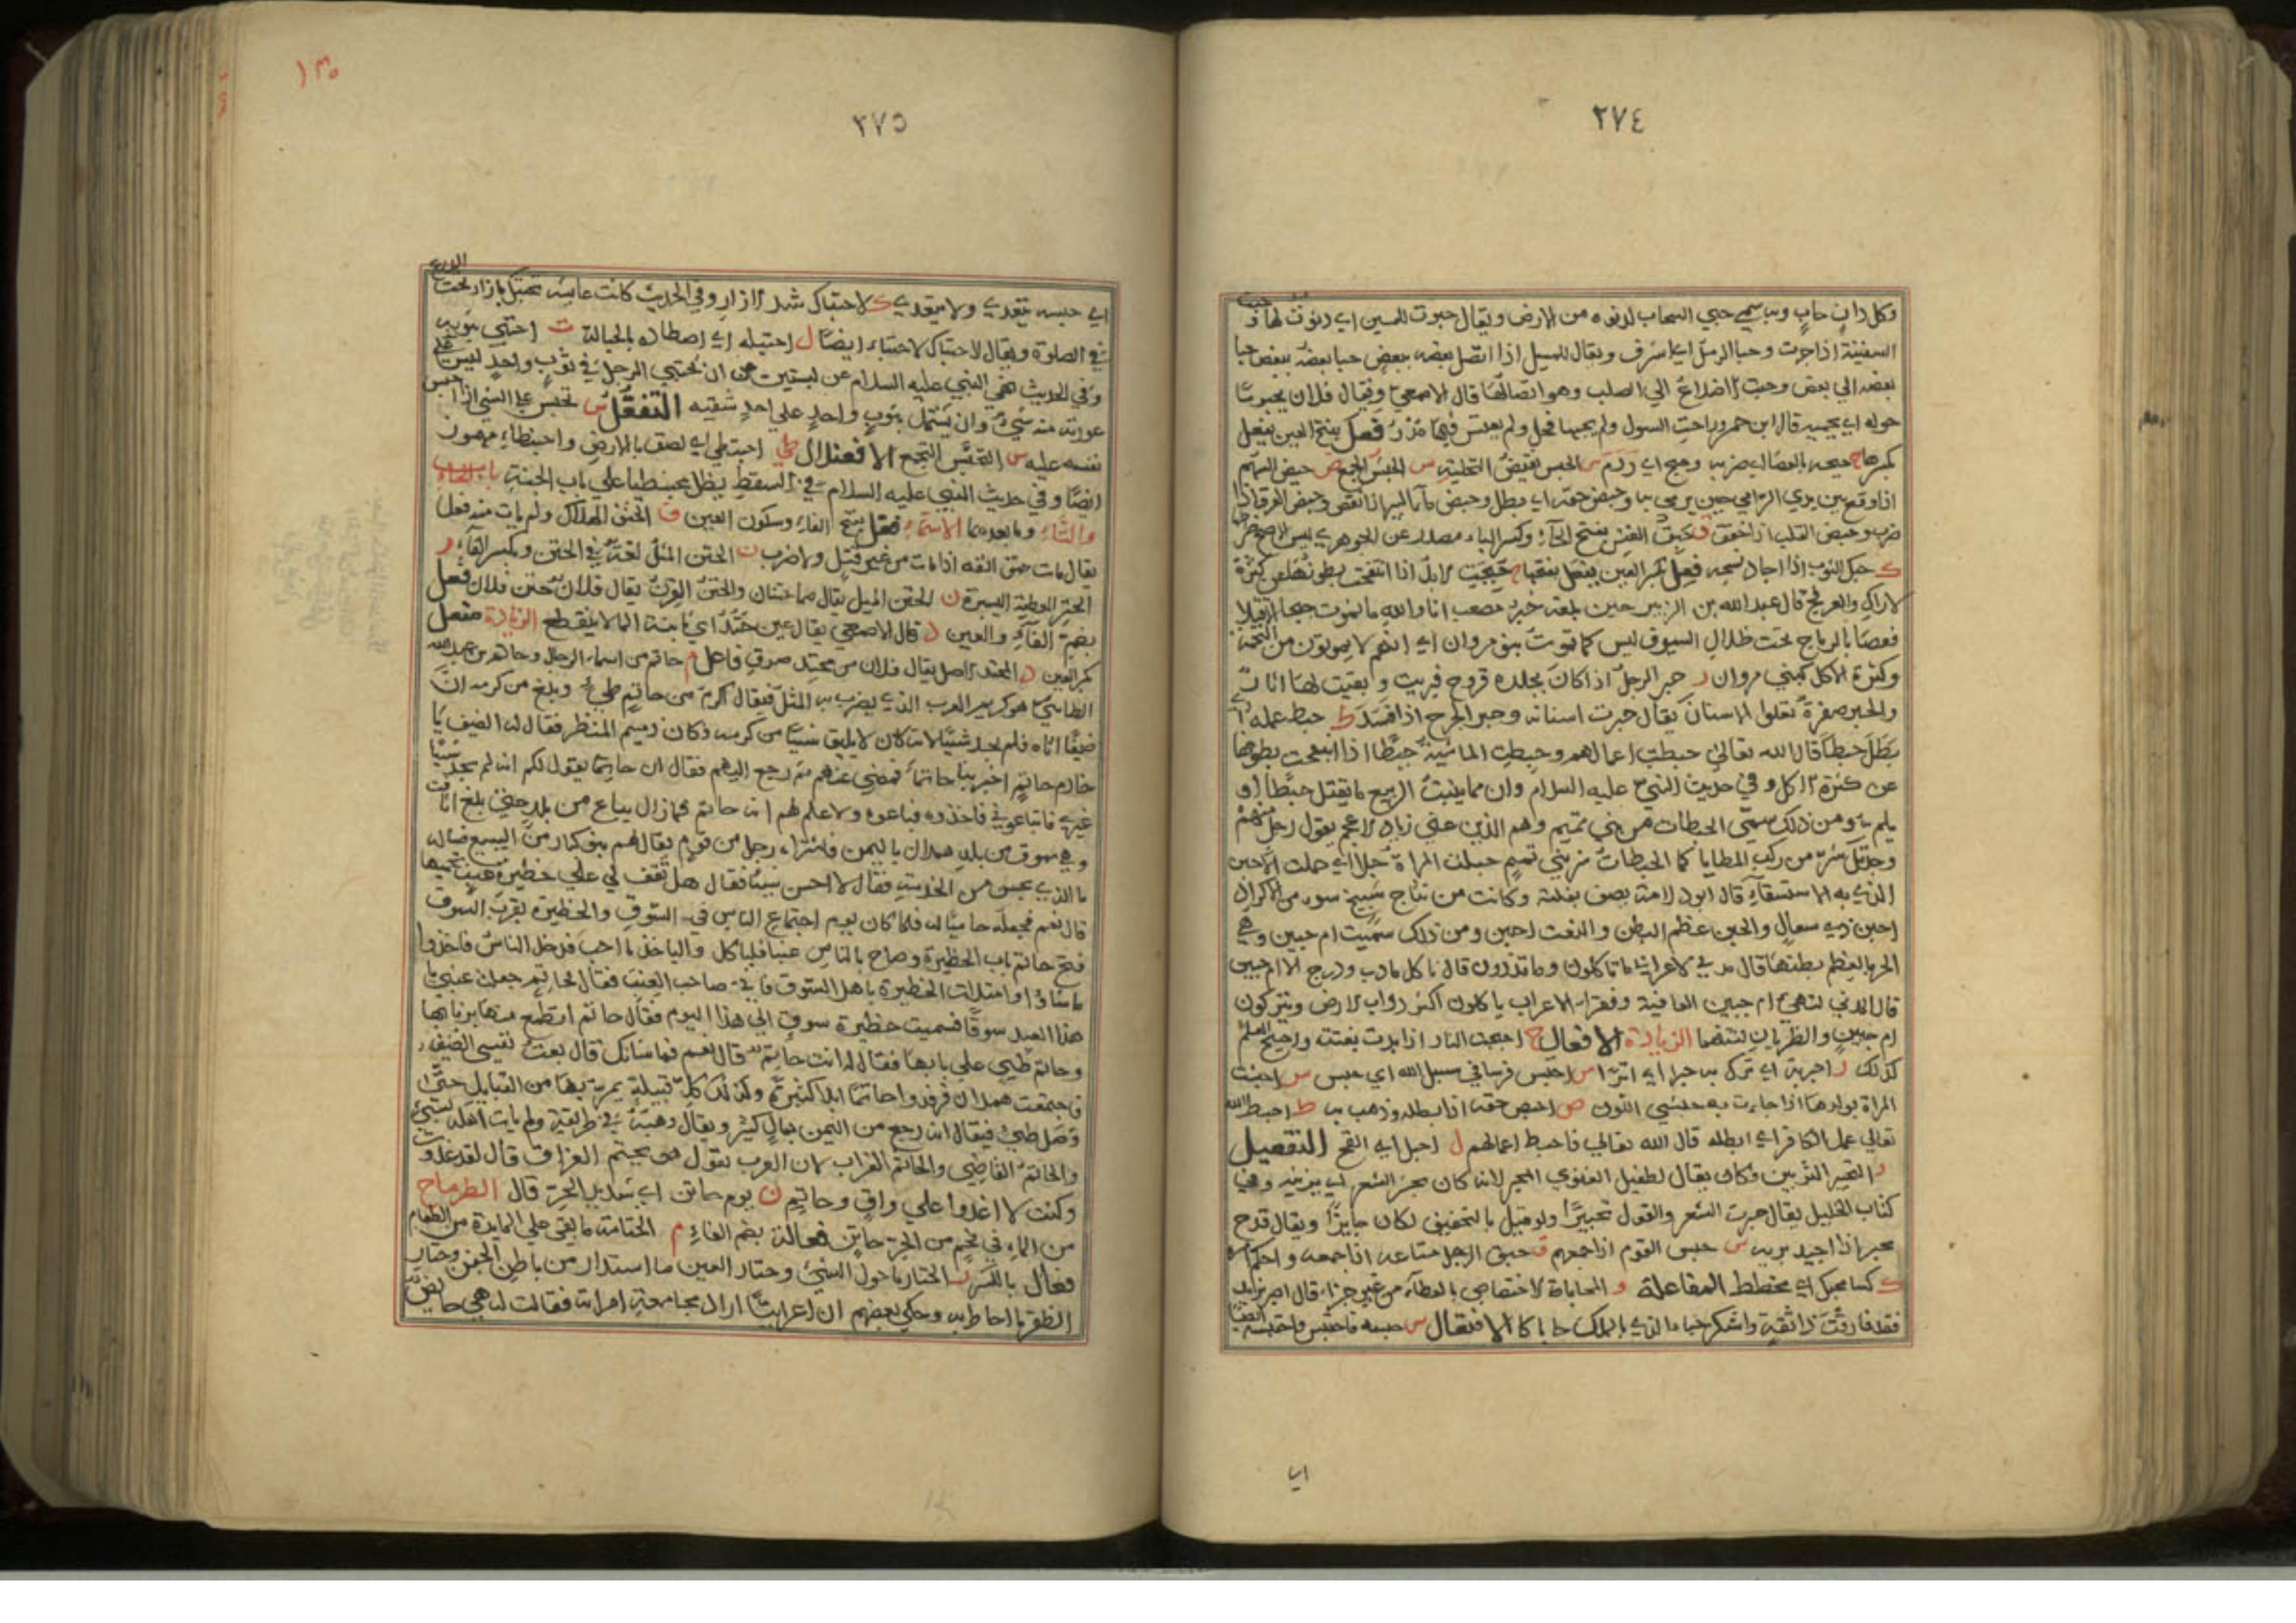 ٢٧٤
وكل دان حاب وبه سمي حبي السحاب لدنوه من الارض ويقال حبوت للخمسين اي دنوت لها و حبت
السفينة اذا جرت وحبا الرمل اي اشرف ويقال للمسيل اذا اتصل بعضه ببعض حبا بعضه ببعض حبا
بعضه الي بعض وحبت الاضلاع الي الصلب وهو اتصالها قال الاصمعي ويقال فلان يحبو ما
حوله اي يحميه قال ابن احمر وراحت الشول ولم يحبها فحل ولم يعتس فيها مدر فعل بفتح العين يفعل
بكسرها ج حبجه بالعصا اي ضربه وحبج اي ردم س الحبس نقيض التخلية س الحبش الجمع ض حبض السهم
اذا وقع بين يدي الرامي حين يرمي به وحبض حقه اي بطل وحبض ماء البير اذا نقص وحبض العرق اذا
ضرب وحبض القلب اذا خفق ق حبق العنز بفتح الحاء وكسر الباء مصدر عن الجوهري ليس الاصح
ك حبك الثوب اذا اجاد نسجه فعل بكسر العين يفعل بفتحها ج حبجت الابل اذا انتفخت بطونها عن كثرة
الاراك والعرفج قال عبد الله بن الزبير حين بلغه خبر مصعب انا والله ما نموت حبجا الا قتلا
قعصا بالرماح تحت ظلال السيوف ليس كما تموت بنو مروان اي انهم لا يموتون من التخمة
وكثرة الاكل كبني مروان ر حبر الرجل اذا كان بجلده قروح فبريت وابقيت لها اثار
والحبر صفرة تعلوا الاسنان يقال حبرت اسنانه وحبر الجرح اذا فسد ط حبط عمله اي
بطل حبطا قال الله تعالى حبطت اعمالهم وحبطت الماشية حبطا اذا انتفخت بطونها
عن كثرة الاكل وفي حديث النبي عليه السلام وان مما ينبت الربيع ما يقتل حبطا او
يلم ومن ذلك سمي الحبطات من بني تميم وهم الذين عني زياد الاعجم بقول رجل منهم
وجدتك شر من ركب المطايا كما الحبطات شر بني تميم ل حبلت المراة حبلا اي حملت ن الاحبن
الذي به الاستسقاء قال ابو دلامة يصف بغلته وكانت من نتاج شيخ سوء من الاكراد
احبن ذي سعال والحبن عظم البطن والنعت احبن ومن ذلك سميت ام حبين وهي
الحرباء لعظم بطنها قال مدني لاعرابي ما تاكلون وما تذرون قال ناكل مادب ودرج الا ام حبين
قال المدني لتهنئ ام حبين العافية وفقراء الاعراب ياكلون اكثر دواب الارض ويتركون
ام حبين والظربان لنتنهما الزيادة الافعال ج احبجت النار اذا بدت بغتة واحبج العلم
كذلك ر احبر به اي ترك به حبرا اي اثرا س احبس فرسا في سبيل الله اي حبس ش احبشت
المراة بولدها اذا جاءت به حبشي اللون ض احبض حقه اذا ابطله وذهب به ط احبط الله
تعالي عمل الكافر اي ابطله قال الله تعالي فاحبط اعمالهم ل احبل اي القح التفعيل
ر التحبير التزيين وكان يقال لطفيل الغنوي المحبر لانه كان يحبر الشعر اي يزينه وفي
كتاب الخليل يقال حبرت الشعر والقول تحبيرا ولو قيل بالتخفيف لكان جايزا ويقال قدح
محبر اذا اجيد بريه ش حبش القوم اذا جمعهم ق حبق الرجل متاعه اذا جمعه واحكم امره
ك كساء محبك اي مخطط المفاعلة و المحاباة الاختصاص بالعطاء من غير جزاء قال امير يزيد
فقد فارقت ذا ثقة واشكر حباء الذي بالملك حاباكا الافتعال س حبسه فاحتبس واحتبسه ايضا
اي
٢٧٥
١٣٥
اي حبسه يتعدي ولا يتعدي ك الاحتباك شد الازار وفي الحديث كانت عايشة تحتبك بازار تحت الدرع
في الصلوة ويقال الاحتباك الاحتباء ايضا ل احتبله اي اصطاده بالحبالة و احتبي بثوبه
وفي الحديث نهي النبي عليه السلام عن لبستين هن ان يحتبي الرجل في ثوب واحد ليس علي
عورته منه شيء وان يشتمل بثوب واحد علي احد شقيه التفعل س تحبس علي الشي اذا حبس
نفسه عليه ش التحبش التجمع الافعنلال طي احبنطي اي لصق بالارض واحبنطاء مهموز
ايضا وفي حديث النبي عليه السلام في السقط يظل محبنطيا علي باب الجنة باب الحاء
والتاء وما بعدهما الاسماء فعل بفتح الفاء وسكون العين ف الحتف الهلاك ولم يات منه فعل
يقال مات حتف انفه اذا مات من غير قتل ولا ضرب ن الحتن المثل لغة في الحتن وبكسر الفاء ر
الحتر العطية اليسيرة ن الحتن المثل يقال هما حتنان والحتن القرن يقال فلان حتن فلان فعل
بضم الفاء والعين د قال الاصمعي يقال عين حتد اي ثابتة الماء لا ينقطع الزيادة مفعل
بكسر العين د المحتد الاصل يقال فلان من محتد صدق فاعل م حاتم من اسماء الرجال وحاتم بن عبد الله
الطاءي هو كريم العرب الذي يضرب به المثل فيقال اكرم من حاتم طيء وبلغ من كرمه ان
ضيفا اتاه فلم يجد شيئا لانه كان لا يليق شيئا من كرمه وكان دميم المنظر فقال له الضيف يا
خادم حاتم اخبر بنا حاتما فمضي عنهم ثم رجع اليهم فقال ان حاتما يقول لكم انه لم يجد شيئا
غيري فابتاعوني فاخذوه فباعوه ولا علم لهم انه حاتم فما زال يباع من بلد حتي بلغ اثافت
وهي سوق من بلد همدان باليمن فاشتراه رجل من قوم يقال لهم بنو كبار من السبيع فساله
ما الذي يحسن من الخدمة فقال لا احسن شيئا فقال هل تقف لي علي حظيرة عنب تحميها
قال نعم فجعله حاميا له فلما كان يوم اجتماع الناس في السوق والحظيرة بقرب السوق
فتح حاتم باب الحظيرة وصاح بالناس عنبا فلياكل والياخذ ما احب فدخل الناس فاخذوا
ما شاؤا وامتلات الحظيرة باهل السوق فاتي صاحب العنب فقال لحاتم جعلت عنبي يا
هذا العبد سوقا فسميت حظيرة سوق الي هذا اليوم فقال حاتم انقطع منها برنابها
وحاتم طيي علي بابها فقال له انت حاتم قال نعم فما شانك قال بعت نفسي الضيف
فاجتمعت همدان فرفدوا حاتما ابلا كثيرة وكذلك كل قبيلة يمر بها من القبايل حتي
وصل طيء فيقال انه رجع من اليمن بمال كثير ويقال وهبه في طريقه ولم يات اهله بشيء
والحاتم القاضي والحاتم الغراب لان العرب تقول هو يحتم الفراق قال لقد غدوت
وكنت لا اغدوا علي واق وحاتم ن يوم حاتن اي شديد الحر قال الطرماح
من الماء في نجم من الحر حاتن فعالة بضم الفاء م الحتامة ما يبقي علي المايدة من الطعام
فعال بالكسر ر الحتار ما حول الشيء وحتار العين ما استدار من باطن الجفن وحتار
الظفر ما احاط به وحكي بعضهم ان اعرابيا اراد مجامعة امراته فقالت له هي حايض